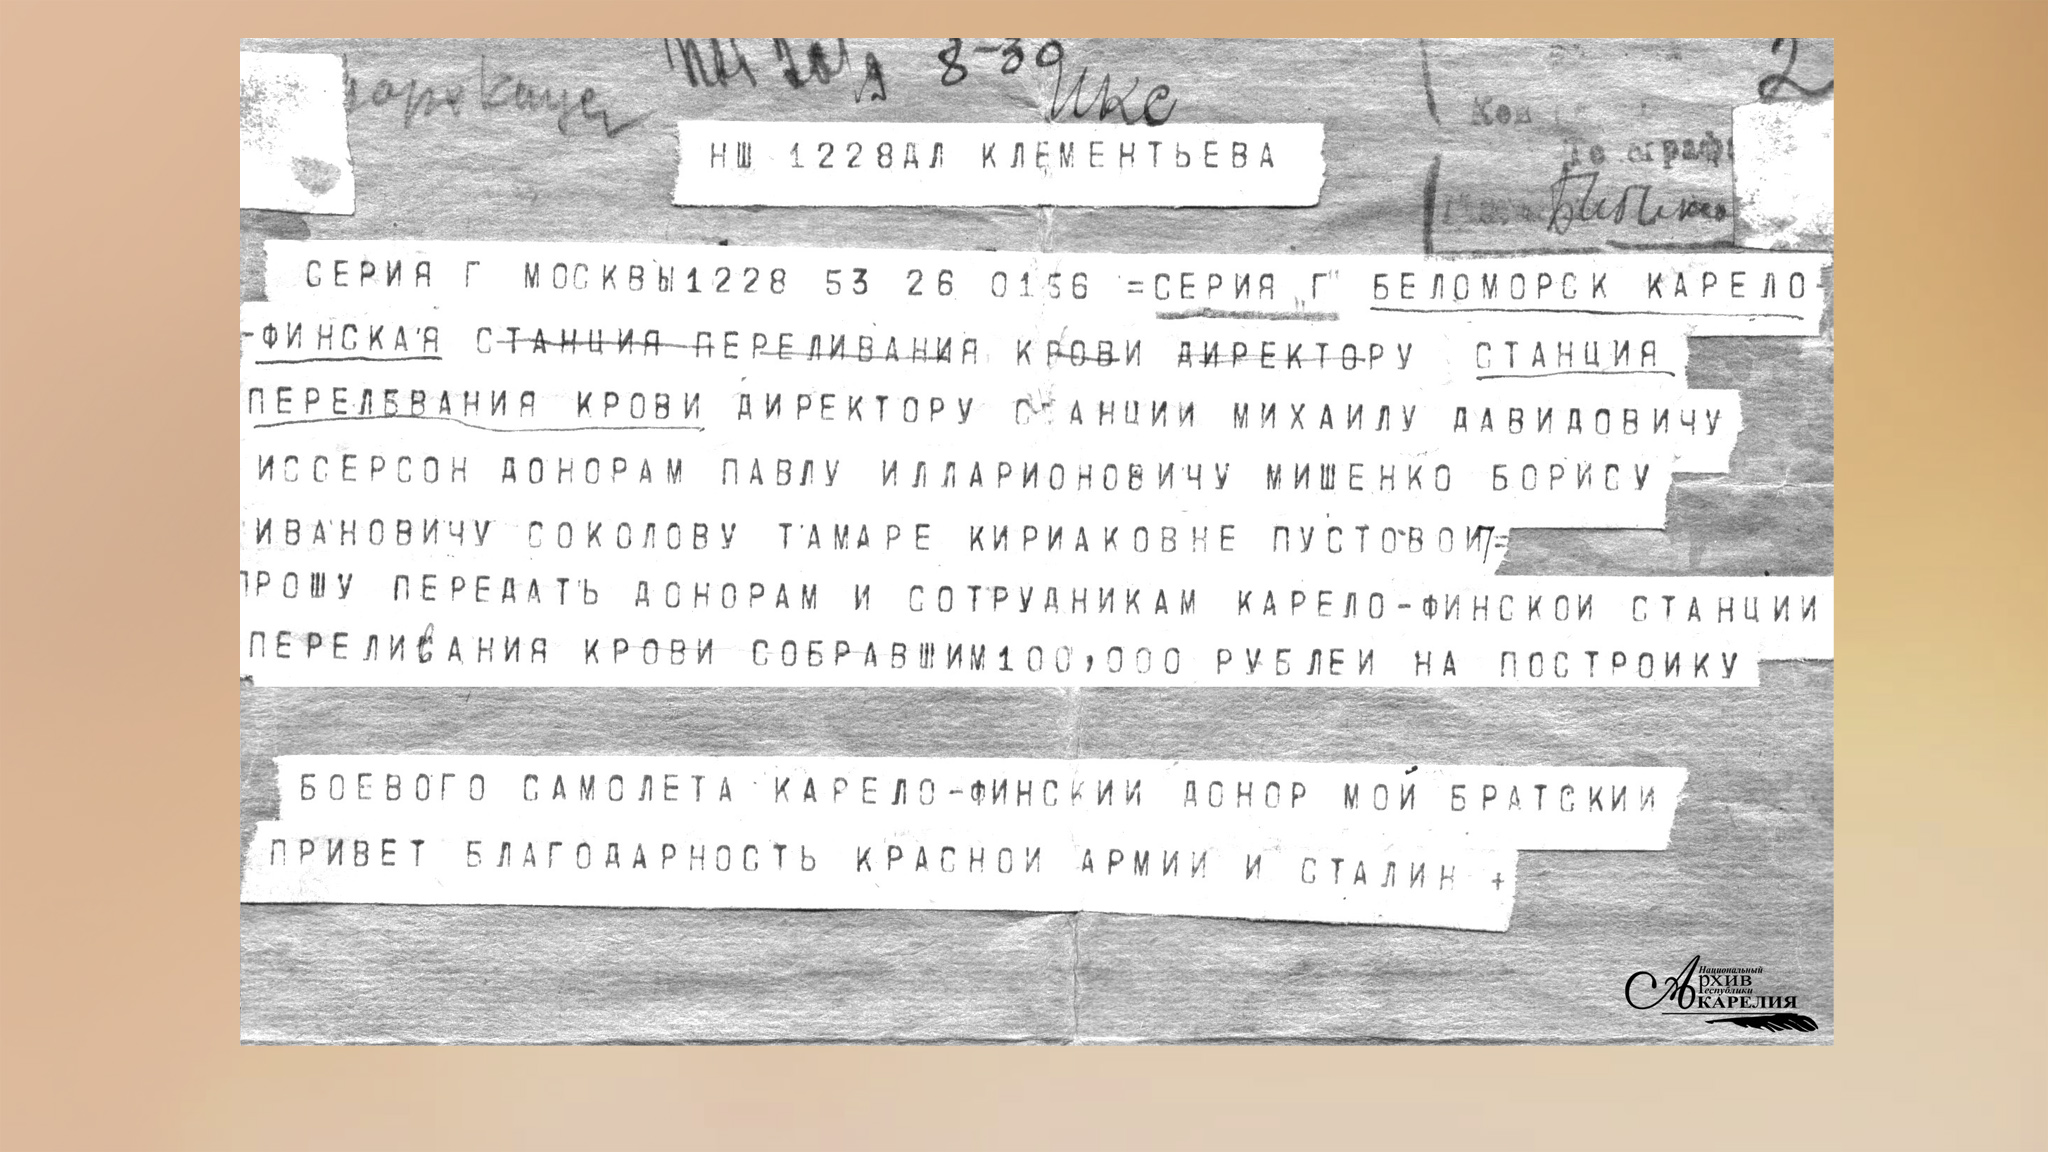 8-30
2
НШ 1228ДЛ КЛЕМЕНТЬЕВА
СЕРИЯ Г МОСКВЫ1228 53 26 0156 =СЕРИЯ „Г" БЕЛОМОРСК КАРЕЛО-
-ФИНСКАЯ СТАНЦИЯ ПЕРЕЛИВАНИЯ КРОВИ ДИРЕКТОРУ СТАНЦИЯ
ПЕРЕЛЕВАНИЯ КРОВИ ДИРЕКТОРУ СТАНЦИИ МИХАИЛУ ДАВИДОВИЧУ
ИССЕРСОН ДОНОРАМ ПАВЛУ ИЛЛАРИОНОВИЧУ МИШЕНКО БОРИСУ
ИВАНОВИЧУ СОКОЛОВУ ТАМАРЕ КИРИАКОВНЕ ПУСТОВОИ=
ПРОШУ ПЕРЕДАТЬ ДОНОРАМ И СОТРУДНИКАМ КАРЕЛО-ФИНСКОИ СТАНЦИИ
ПЕРЕЛИВАНИЯ КРОВИ СОБРАВШИМ100,000 РУБЛЕИ НА ПОСТРОИКУ
БОЕВОГО САМОЛЕТА КАРЕЛО-ФИНСКИИ ДОНОР МОЙ БРАТСКИИ
ПРИВЕТ БЛАГОДАРНОСТЬ КРАСНОИ АРМИИ И СТАЛИН +
Национальный
Архив
Республики
Карелия